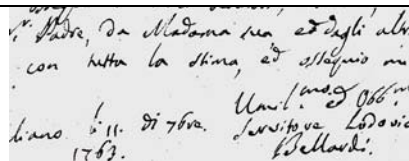 r. Padre, Da Madama sua ed dagli altr
con tutta la stima, ed ossequio mi
Umil.mo ed Obb.mo
liano li 11. Di 7bre. Servitore Lodovic
1763. Bellardi.